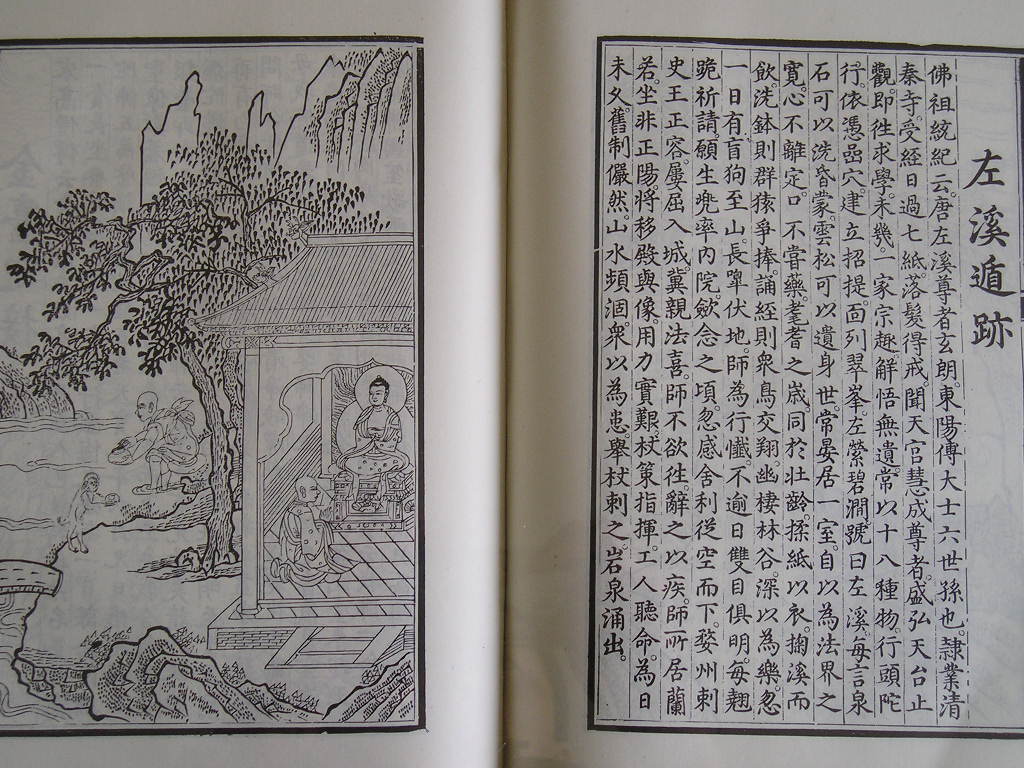 左溪遁跡
佛祖統紀云。唐左溪尊者玄朗。東陽傅大士六世孫也。隸業清
泰寺。受經日過七紙。落髮得戒。聞天宮慧威尊者。盛弘天台止
觀。即往求學。未幾一家宗趣解悟無遺。常以十八種物。行頭陀
行。依憑嵒穴。建立招提。面列翠峯。左縈碧澗。號曰左溪。每言泉
石可以洗昏蒙。雲松可以遺身世。常宴居一室。自以為法界之
寬。心不離定。口不嘗藥。耄耋之歲。同於壯齡。揉紙以衣。掬溪而
飲。洗鉢則群猿爭捧。誦經則眾鳥交翔。幽棲林谷。深以為樂。忽
一日有盲狗至山。長嘷伏地。師為行懺。不逾日雙目俱明。每翹
跪祈請。願生兜率內院。斂念之頃。忽感舍利從空而下。婺州刺
史王正容。屢屈入城。冀親法喜。師不欲往。辭之以疾。師所居蘭
若。坐非正陽。將移殿與像。用力實艱。杖策指揮。工人聽命。為日
未久。舊制儼然。山水頻涸。眾以為患。舉杖刺之。岩泉涌出。